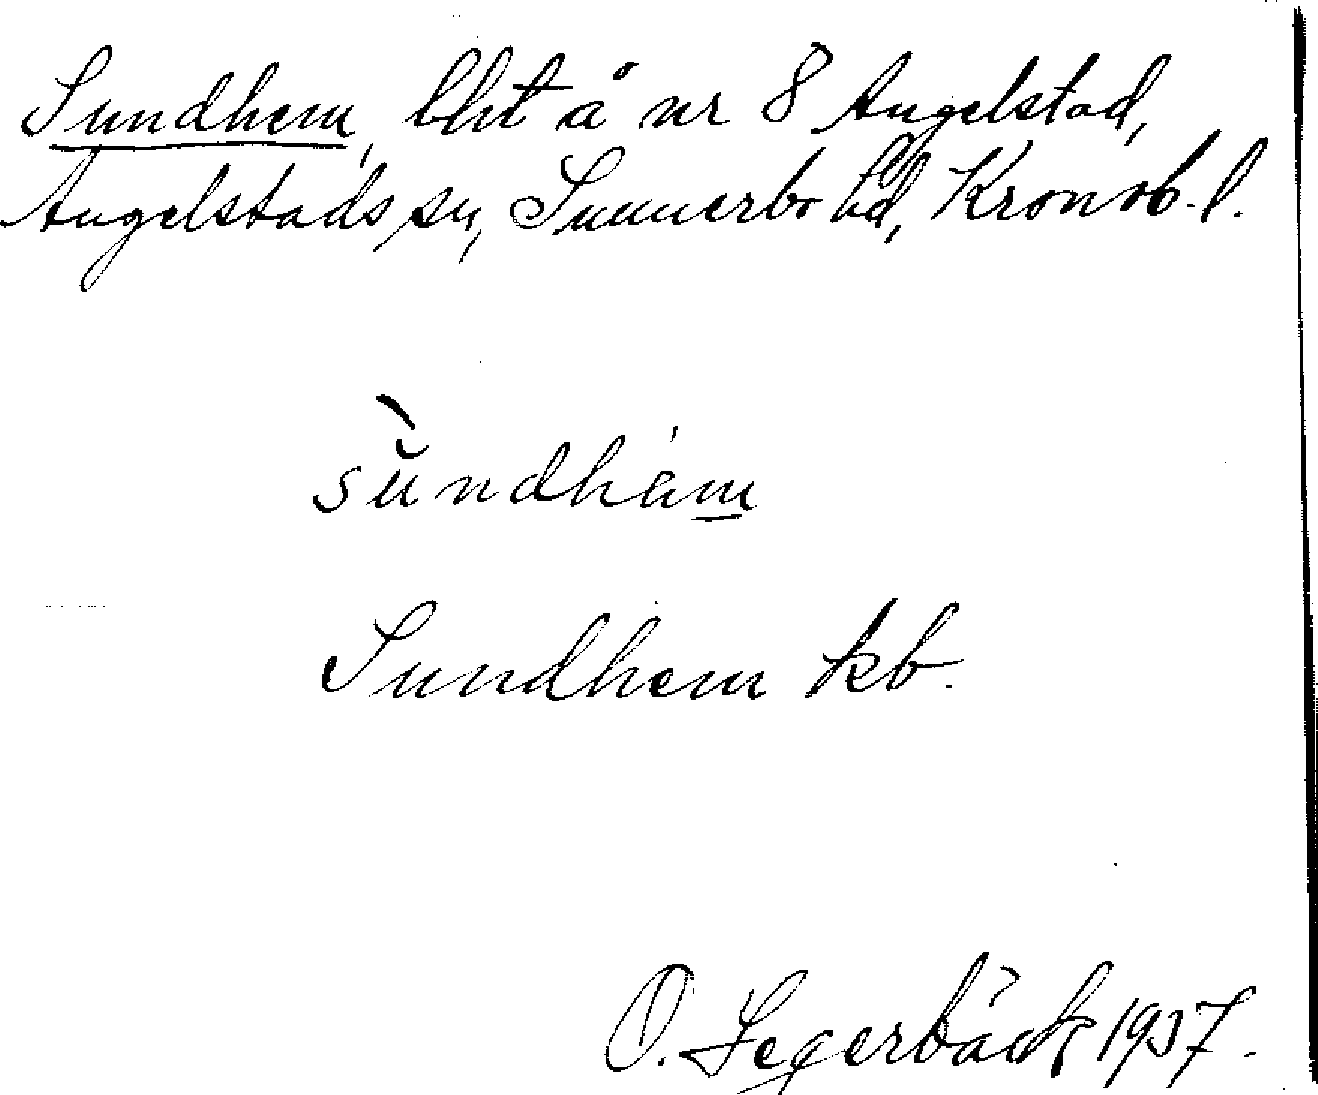 Sundhem, lht å nr 8 Angelstad,
Angelstads sn, Sunnerbo hd, Kronob. l.
sŭ̀ndhám
Sundhem kb.
O. Segerbäck 1937.